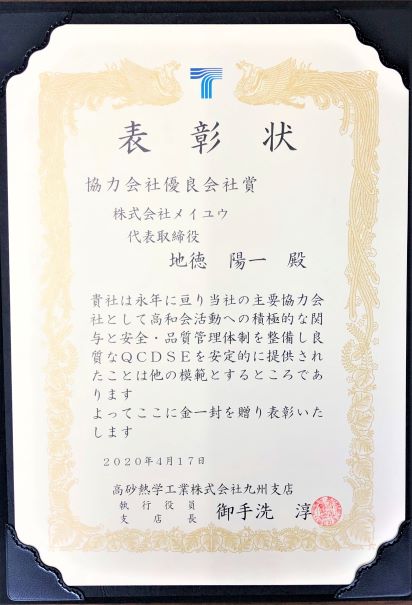 表彰状
協力会社優良会社賞
株式会社メイユウ
代表取締役
地徳 陽一 殿
貴社は永年に亘り当社の主要協力会
社として高和会活動への積極的な関
与と安全・品質管理体制を整備し良
質なQCDSEを安定的に提供され
たことは他の模範とするところであ
ります
よってここに金一封を贈り表彰いた
します
2020年4月17日
高砂熱学工業株式会社九州支店
執行役員
支店長 御手洗 淳